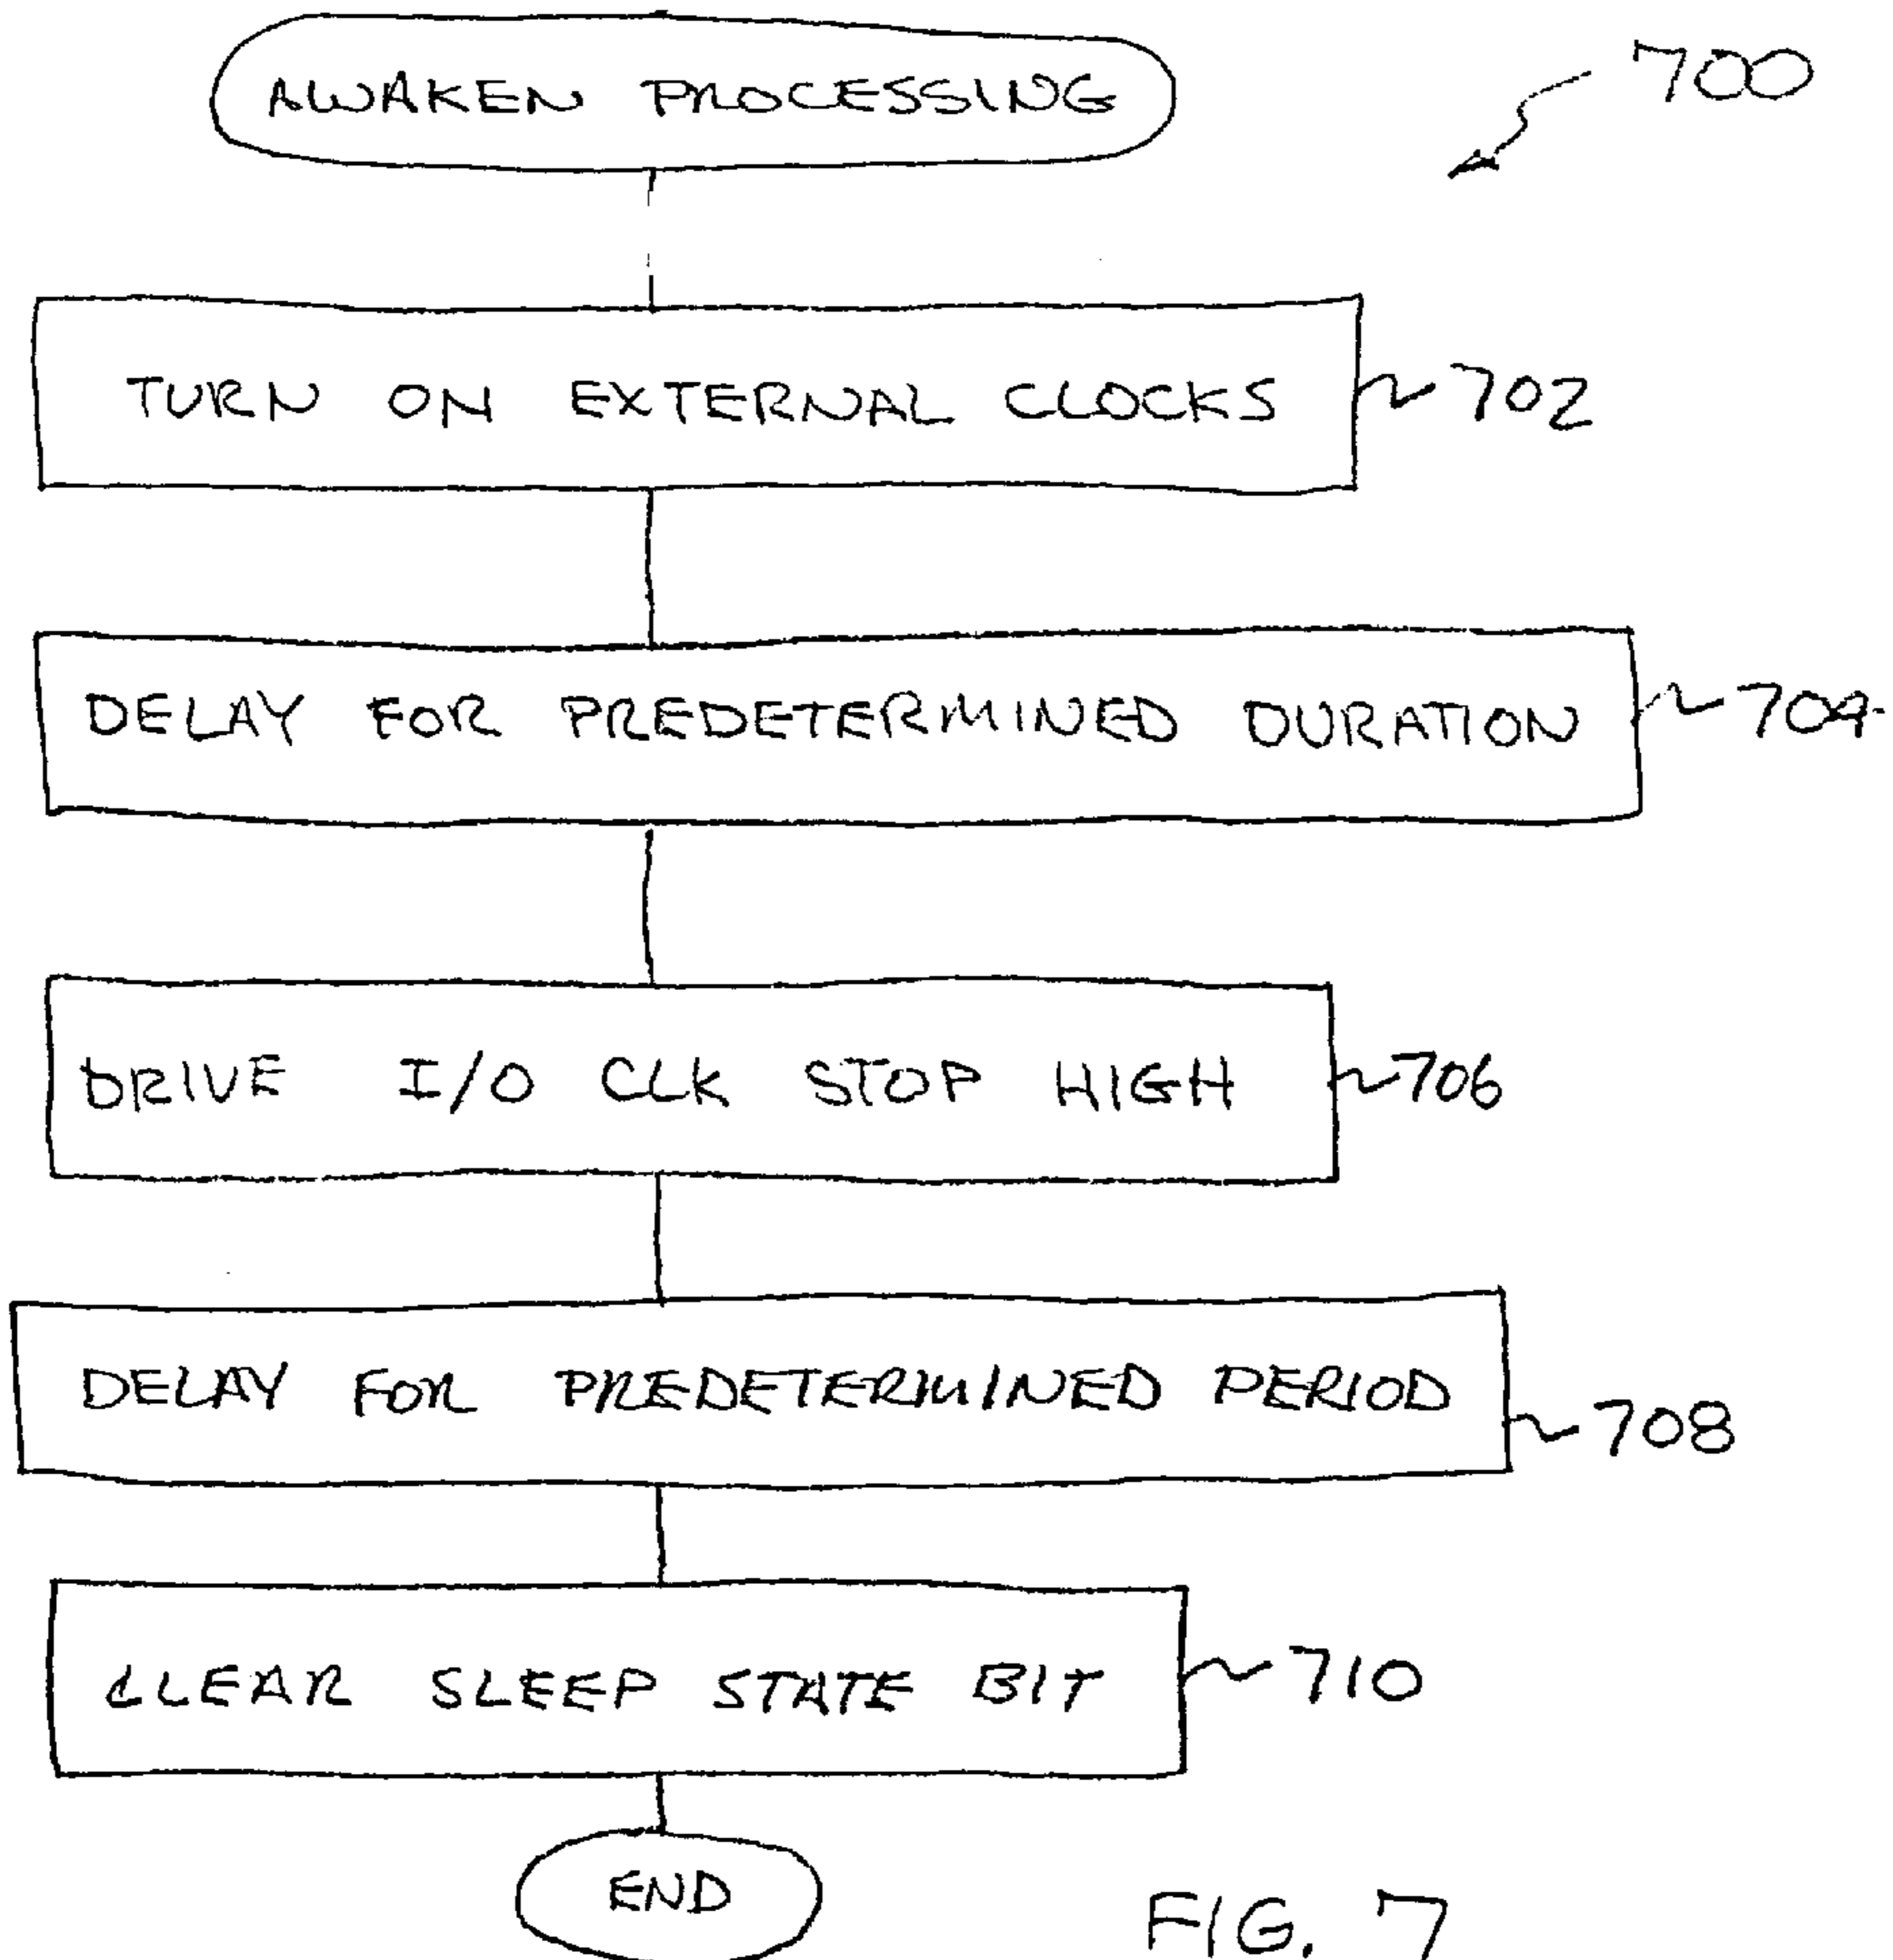 AWAKEN PROCESSING
700
TURN ON EXTERNAL CLOCKS
702
DELAY FOR PREDETERMINED DURATION
704
DRIVE I/O CLK STOP HIGH
706
DELAY FOR PREDETERMINED PERIOD
708
CLEAR SLEEP STATE BIT
710
END
FIG. 7